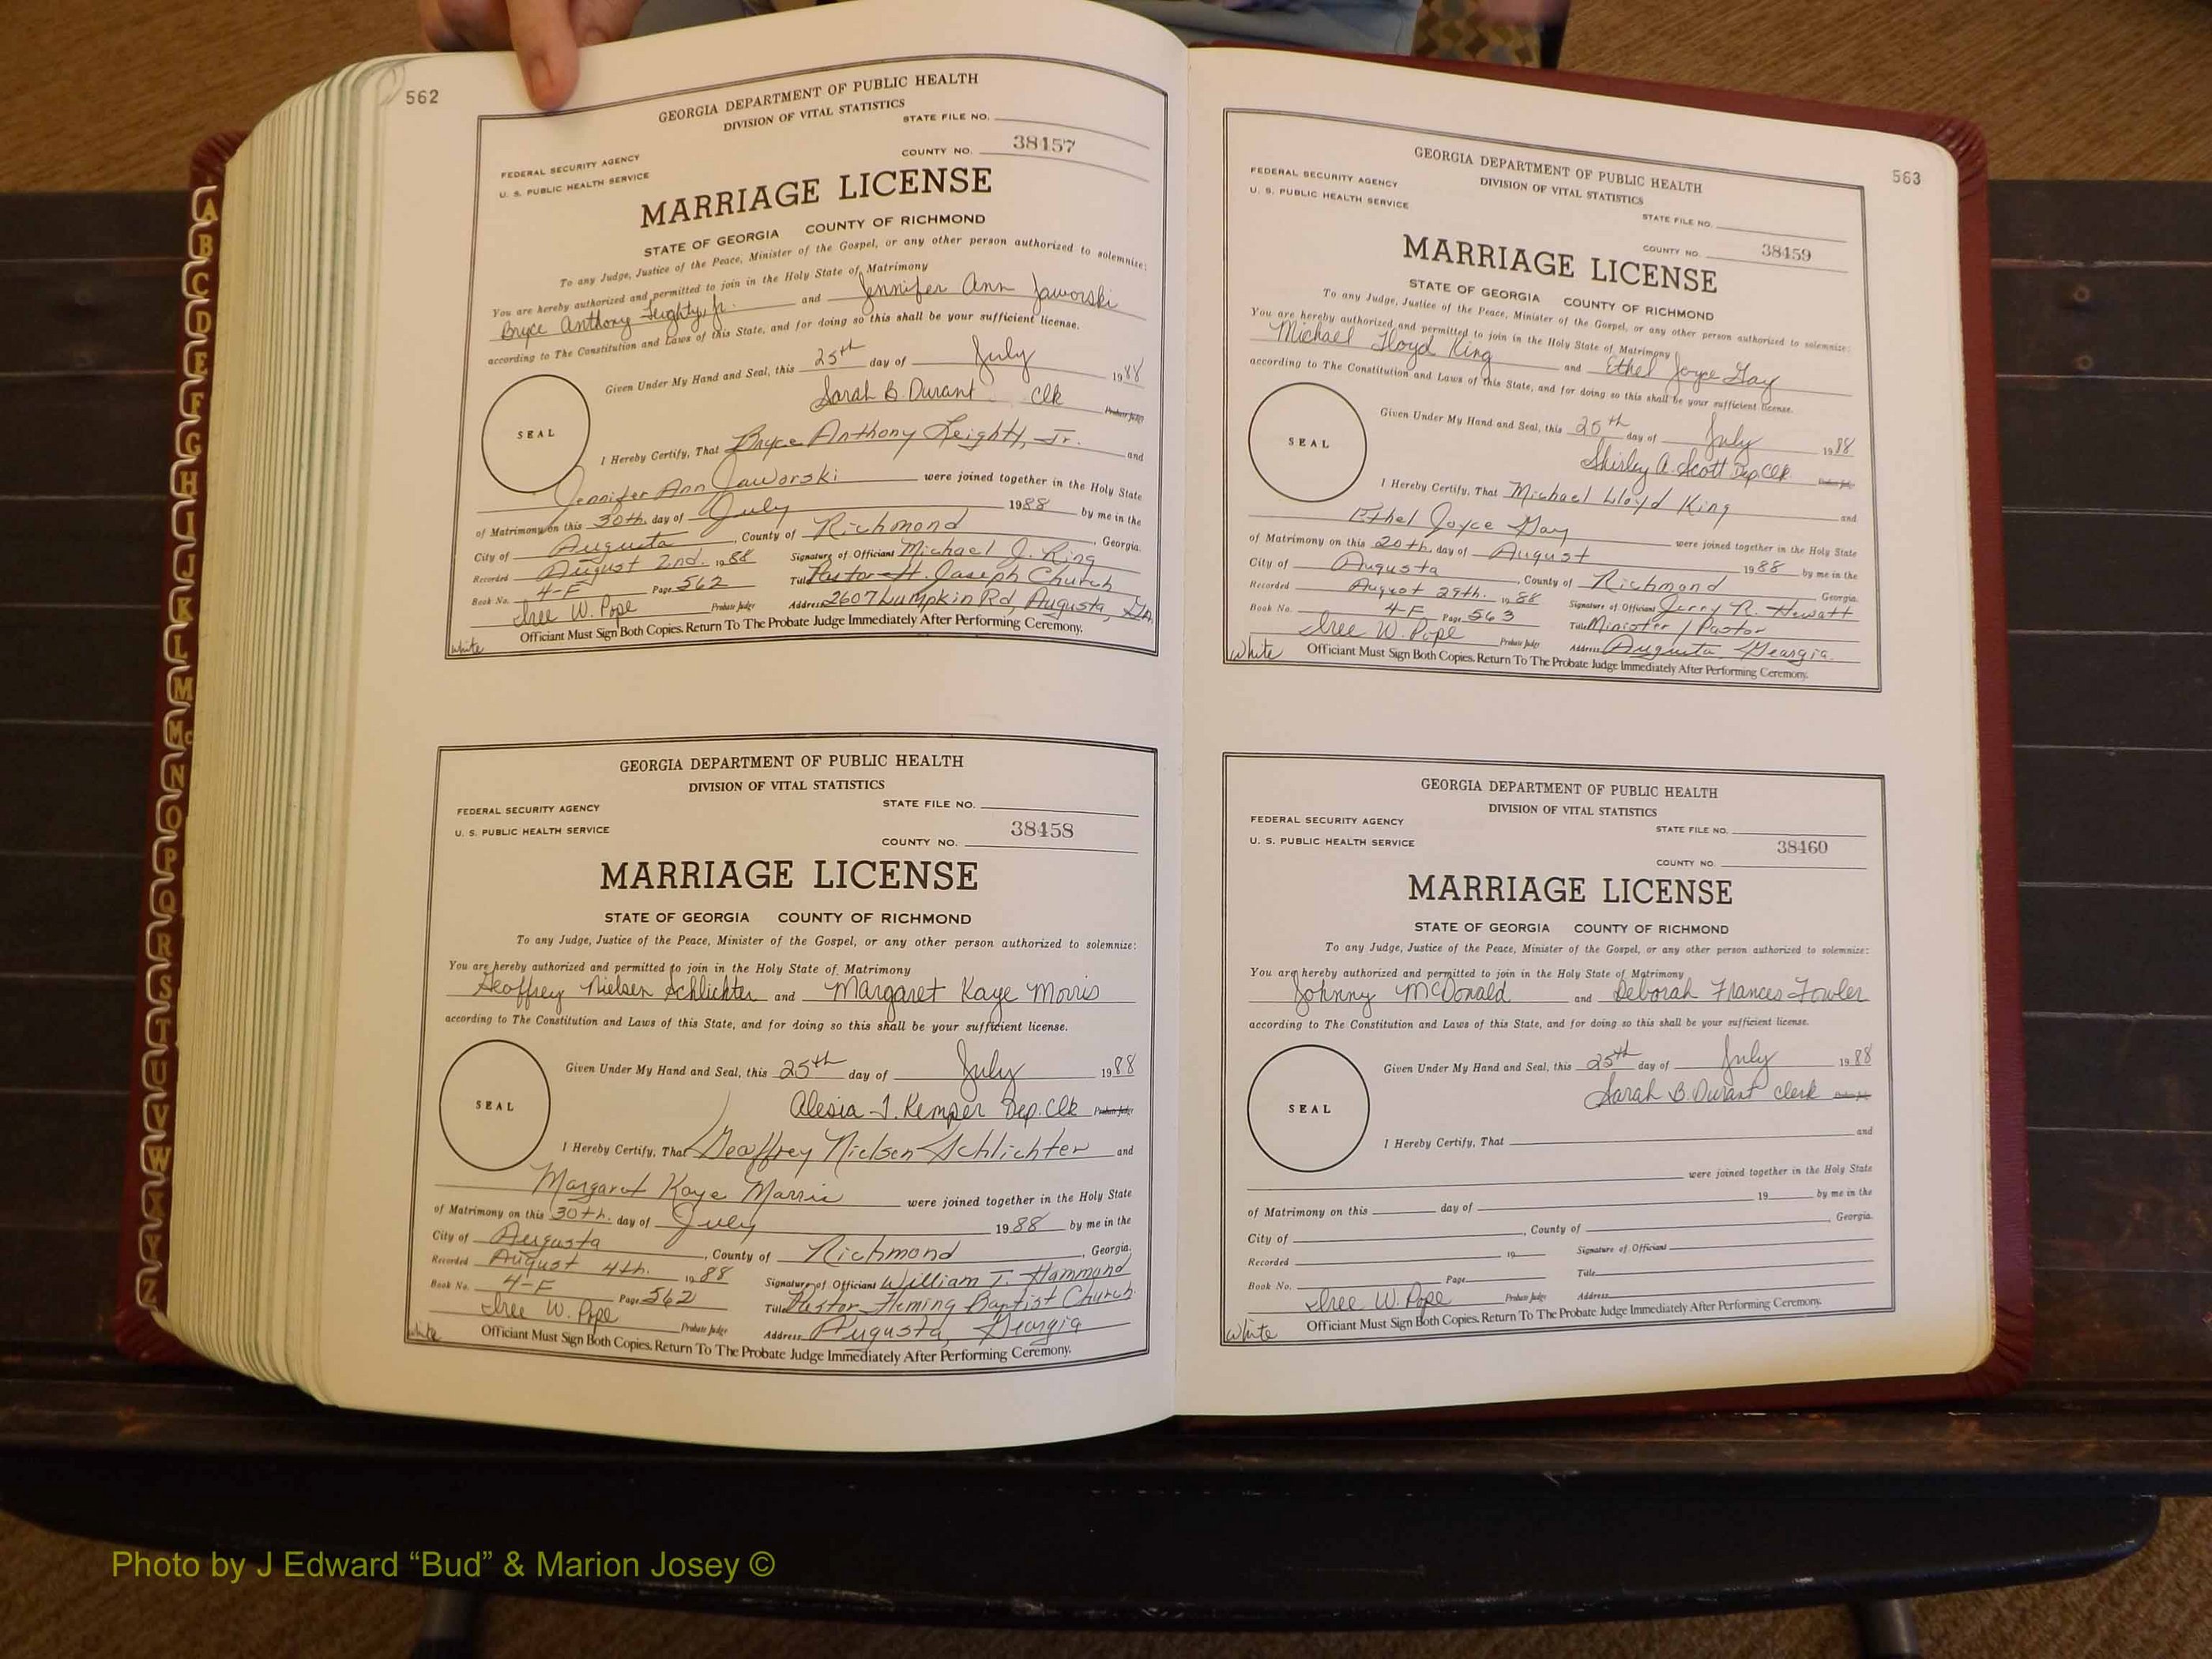 562
GEORGIA DEPARTMENT OF PUBLIC HEALTH
DIVISION OF VITAL STATISTICS
STATE FILE NO.
FEDERAL SECURITY AGENCY
U. S. PUBLIC HEALTH SERVICE
COUNTY NO. 38457
MARRIAGE LICENSE
STATE OF GEORGIA COUNTY OF RICHMOND
To any Judge, Justice of the Peace, Minister of the Gospel, or any other person authorized to solemnize:
You are hereby authorized and permitted to join in the Holy State of Matrimony
Bryce Anthony Jr. and Jennifer Ann Jaworski
according to The Constitution and Laws of this State, and for doing so this shall be your sufficient license.
Given Under My Hand and Seal, this 25th day of July 1988
Sarah B. Durant Clk Probate Judge
SEAL
I Hereby Certify, That Bryce Anthony Jr. and
Jennifer Ann Jaworski were joined together in the Holy State
of Matrimony on this 30th. day of July 1988 by me in the
City of Augusta, County of Richmond, Georgia.
Recorded August 2nd. 1988 Signature of Officiant Michael J. King
Book No. 4-F Page 562 Title Pastor St. Joseph Church
Iree W. Pope Probate Judge Address 2607 Lumpkin Rd, Augusta, Ga.
white Officiant Must Sign Both Copies. Return To The Probate Judge Immediately After Performing Ceremony.
GEORGIA DEPARTMENT OF PUBLIC HEALTH
DIVISION OF VITAL STATISTICS
FEDERAL SECURITY AGENCY STATE FILE NO.
U. S. PUBLIC HEALTH SERVICE 38458
COUNTY NO.
MARRIAGE LICENSE
STATE OF GEORGIA COUNTY OF RICHMOND
To any Judge, Justice of the Peace, Minister of the Gospel, or any other person authorized to solemnize:
You are hereby authorized and permitted to join in the Holy State of Matrimony
Geoffrey Nielsen Schlichter and Margaret Kaye Morris
according to The Constitution and Laws of this State, and for doing so this shall be your sufficient license.
Given Under My Hand and Seal, this 25th day of July 1988
Alesia J. Kemper Dep. Clk Probate Judge
SEAL
I Hereby Certify, That Geoffrey Nielsen Schlichter and
Margaret Kaye Morris were joined together in the Holy State
of Matrimony on this 30th. day of July 1988 by me in the
City of Augusta, County of Richmond, Georgia.
Recorded August 4th. 1988 Signature of Officiant William T. Hammond
Book No. 4-F Page 562 Title Pastor Fleming Baptist Church
Iree W. Pope Probate Judge Address Augusta, Georgia
white Officiant Must Sign Both Copies. Return To The Probate Judge Immediately After Performing Ceremony.
563
GEORGIA DEPARTMENT OF PUBLIC HEALTH
DIVISION OF VITAL STATISTICS
FEDERAL SECURITY AGENCY
U. S. PUBLIC HEALTH SERVICE
STATE FILE NO.
COUNTY NO. 38459
MARRIAGE LICENSE
STATE OF GEORGIA COUNTY OF RICHMOND
To any Judge, Justice of the Peace, Minister of the Gospel, or any other person authorized to solemnize:
You are hereby authorized and permitted to join in the Holy State of Matrimony
Michael Lloyd King and Ethel Joyce Gay
according to The Constitution and Laws of this State, and for doing so this shall be your sufficient license.
Given Under My Hand and Seal, this 25th day of July 1988
Shirley A. Scott Dep. Clk. Probate Judge
SEAL
I Hereby Certify, That Michael Lloyd King and
Ethel Joyce Gay were joined together in the Holy State
of Matrimony on this 20th. day of August 1988 by me in the
City of Augusta, County of Richmond Georgia.
Recorded August 29th. 1988 Signature of Officiant Jerry R. Howatt
Book No. 4-F Page 563 Title Minister / Pastor
Iree W. Pope Probate Judge Address Augusta Georgia.
white Officiant Must Sign Both Copies. Return To The Probate Judge Immediately After Performing Ceremony.
GEORGIA DEPARTMENT OF PUBLIC HEALTH
DIVISION OF VITAL STATISTICS
FEDERAL SECURITY AGENCY STATE FILE NO.
U. S. PUBLIC HEALTH SERVICE 38460
COUNTY NO.
MARRIAGE LICENSE
STATE OF GEORGIA COUNTY OF RICHMOND
To any Judge, Justice of the Peace, Minister of the Gospel, or any other person authorized to solemnize:
You are hereby authorized and permitted to join in the Holy State of Matrimony
Johnny McDonald and Deborah Frances Fowler
according to The Constitution and Laws of this State, and for doing so this shall be your sufficient license.
Given Under My Hand and Seal, this 25th day of July 1988
Sarah B. Durant Clerk Probate Judge
SEAL
I Hereby Certify, That and
were joined together in the Holy State
of Matrimony on this day of 19 by me in the
City of , County of Georgia.
Recorded 19 Signature of Officiant
Book No. Page Title
Iree W. Pope Probate Judge Address
white Officiant Must Sign Both Copies. Return To The Probate Judge Immediately After Performing Ceremony.
A
B
C
D
E
F
G
H
I
J
K
L
M
Mc
N
O
P
Q
R
S
T
U
V
W
X
Y
Z
Photo by J Edward “Bud” & Marion Josey ©